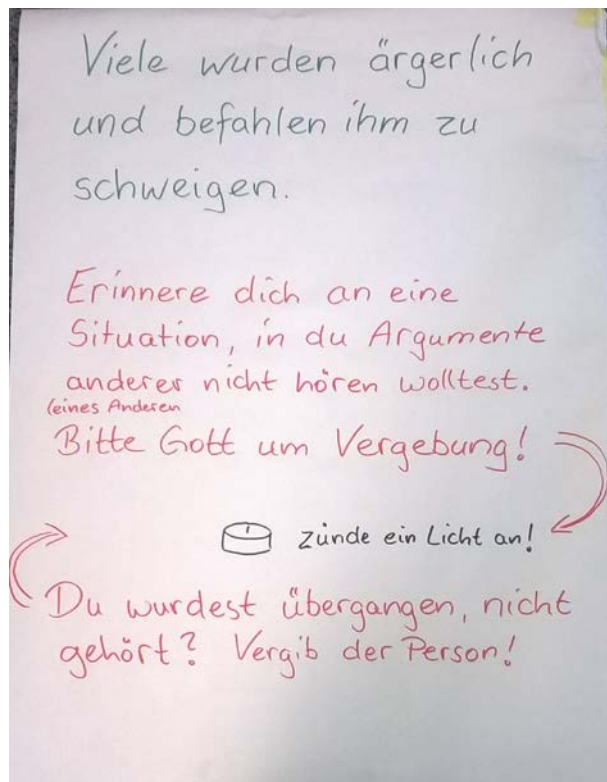 Viele wurden ärgerlich
und befahlen ihm zu
schweigen.
Erinnere dich an eine
Situation, in du Argumente
anderer nicht hören wolltest.
(eines Anderen
Bitte Gott um Vergebung!
zünde ein Licht an!
Du wurdest übergangen, nicht
gehört? Vergib der Person!